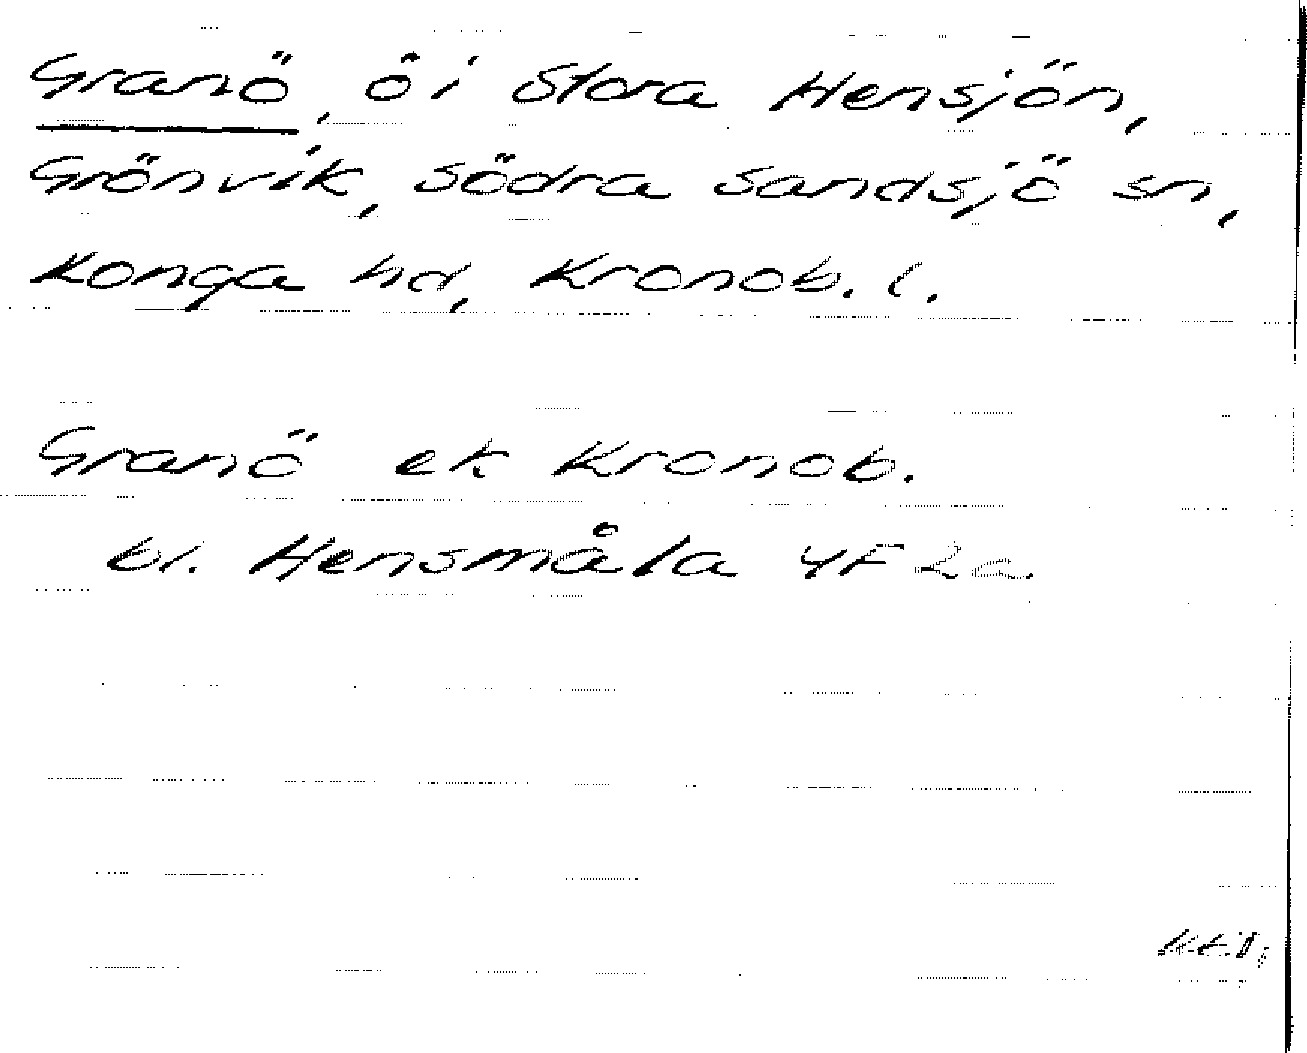 Granö, ö i Stora Hensjön,
Grönvik, Södra Sandsjö sn,
Konga hd, Kronob. l.
Granö ek Kronob.
bl. Hensmåla 4F 2a